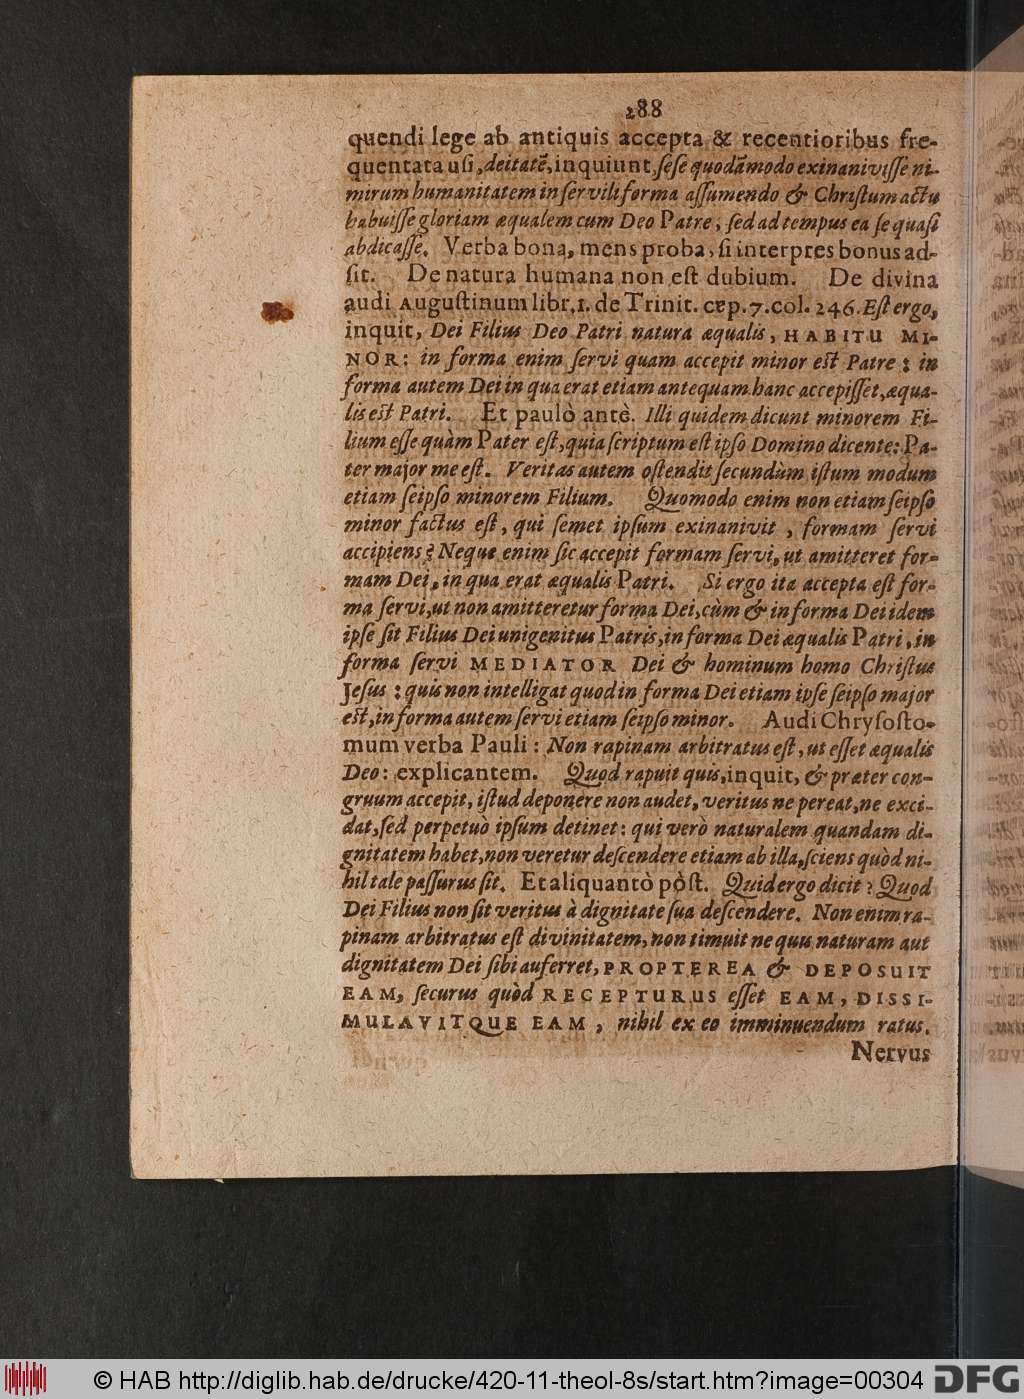 288
quendi lege ab antiquis accepta & recentioribus fre-
quentata usi, deitatẽ, inquiunt, ſeſe quodãmodo exinaniviſſe ni-
mirum humanitatem in ſervili forma aſſumendo & Chriſtum actu
habuiſſe gloriam æqualem cum Deo Patre, ſed ad tempus ea ſe quaſi
abdicaſſe. Verba bona, mens proba, ſi interpres bonus ad-
ſit. De natura humana non eſt dubium. De divina
audi Auguſtinum libr. 1. de Trinit. cap. 7. col. 246. Eſt ergo,
inquit, Dei Filius Deo Patri natura æqualis, HABITU MI-
NOR: in forma enim ſervi quam accepit minor eſt Patre: in
forma autem Dei in qua erat etiam antequam hanc accepiſſet, æqua-
lis eſt Patri. Et paulò antè. Illi quidem dicunt minorem Fi-
lium eſſe quàm Pater eſt, quia ſcriptum eſt ipſo Domino dicente: Pa-
ter major me eſt. Veritas autem oſtendit ſecundùm iſtum modum
etiam ſeipſo minorem Filium. Quomodo enim non etiam ſeipſo
minor factus eſt, qui ſemet ipſum exinanivit, formam ſervi
accipiens? Neque enim ſic accepit formam ſervi, ut amitteret for-
mam Dei, in qua erat æqualis Patri. Si ergo ita accepta eſt for-
ma ſervi, ut non amitteretur forma Dei, cùm & in forma Dei idem
ipſe ſit Filius Dei unigenitus Patris, in forma Dei æqualis Patri, in
forma ſervi MEDIATOR Dei & hominum homo Chriſtus
Jeſus: quis non intelligat quod in forma Dei etiam ipſe ſeipſo major
eſt, in forma autem ſervi etiam ſeipſo minor. Audi Chryſoſto-
mum verba Pauli: Non rapinam arbitratus eſt, ut eſſet æqualis
Deo: explicantem. Quod rapuit quis, inquit, & præter con-
gruum accepit, iſtud deponere non audet, veritus ne pereat, ne exci-
dat, ſed perpetuò ipſum detinet: qui verò naturalem quandam di-
gnitatem habet, non veretur deſcendere etiam ab illa, ſciens quòd ni-
hil tale paſſurus ſit. Et aliquantò pòſt. Quid ergo dicit? Quod
Dei Filius non ſit veritus à dignitate ſua deſcendere. Non enim ra-
pinam arbitratus eſt divinitatem, non timuit ne quis naturam aut
dignitatem Dei ſibi auferret, PROPTEREA & DEPOSUIT
EAM, ſecurus quòd RECEPTURUS eſſet EAM, DISSI-
MULAVITQUE EAM, nihil ex eo imminuendum ratus.
Nervus
© HAB http://diglib.hab.de/drucke/420-11-theol-8s/start.htm?image=00304
DFG